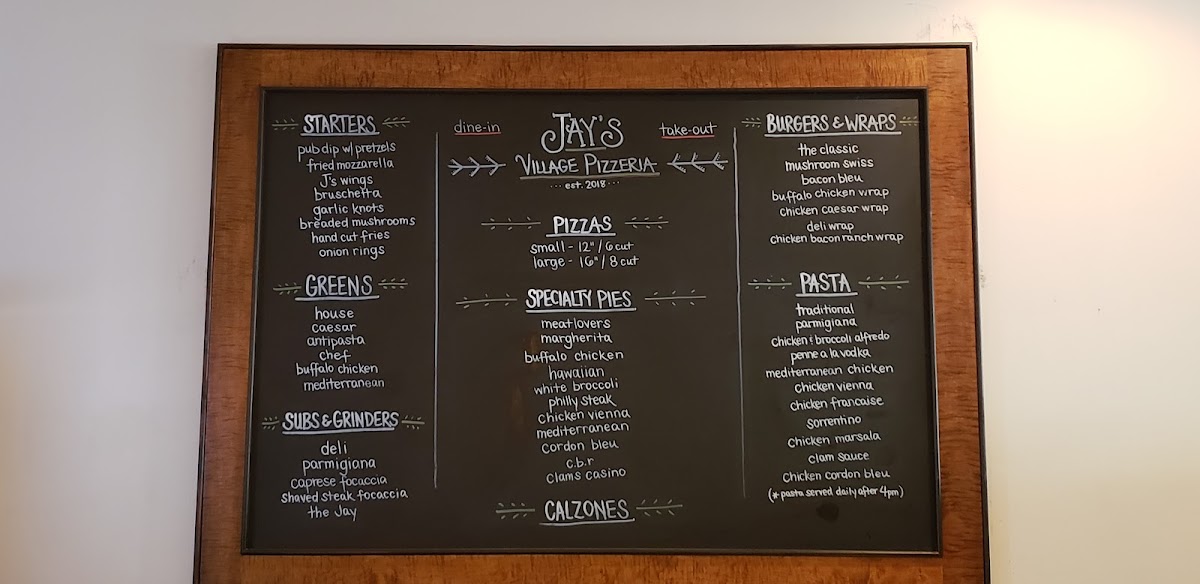 STARTERS
pub dip w/ pretzels
fried mozzarella
J's wings
bruschetta
garlic knots
breaded mushrooms
hand cut fries
onion rings
GREENS
house
caesar
antipasta
chef
buffalo chicken
mediterranean
SUBS & GRINDERS
deli
parmigiana
caprese focaccia
shaved steak focaccia
the Jay
dine-in
JAY'S
take-out
VILLAGE PIZZERIA
... est. 2018 ...
PIZZAS
small - 12" / 6 cut
large - 16" / 8 cut
SPECIALTY PIES
meatlovers
margherita
buffalo chicken
hawaiian
white broccoli
philly steak
chicken vienna
mediterranean
cordon bleu
c.b.r
clams casino
CALZONES
BURGERS & WRAPS
the classic
mushroom swiss
bacon bleu
buffalo chicken wrap
chicken caesar wrap
deli wrap
chicken bacon ranch wrap
PASTA
traditional
parmigiana
chicken & broccoli alfredo
penne a la vodka
mediterranean chicken
chicken vienna
chicken francaise
sorrentino
chicken marsala
clam sauce
chicken cordon bleu
(* pasta served daily after 4pm)